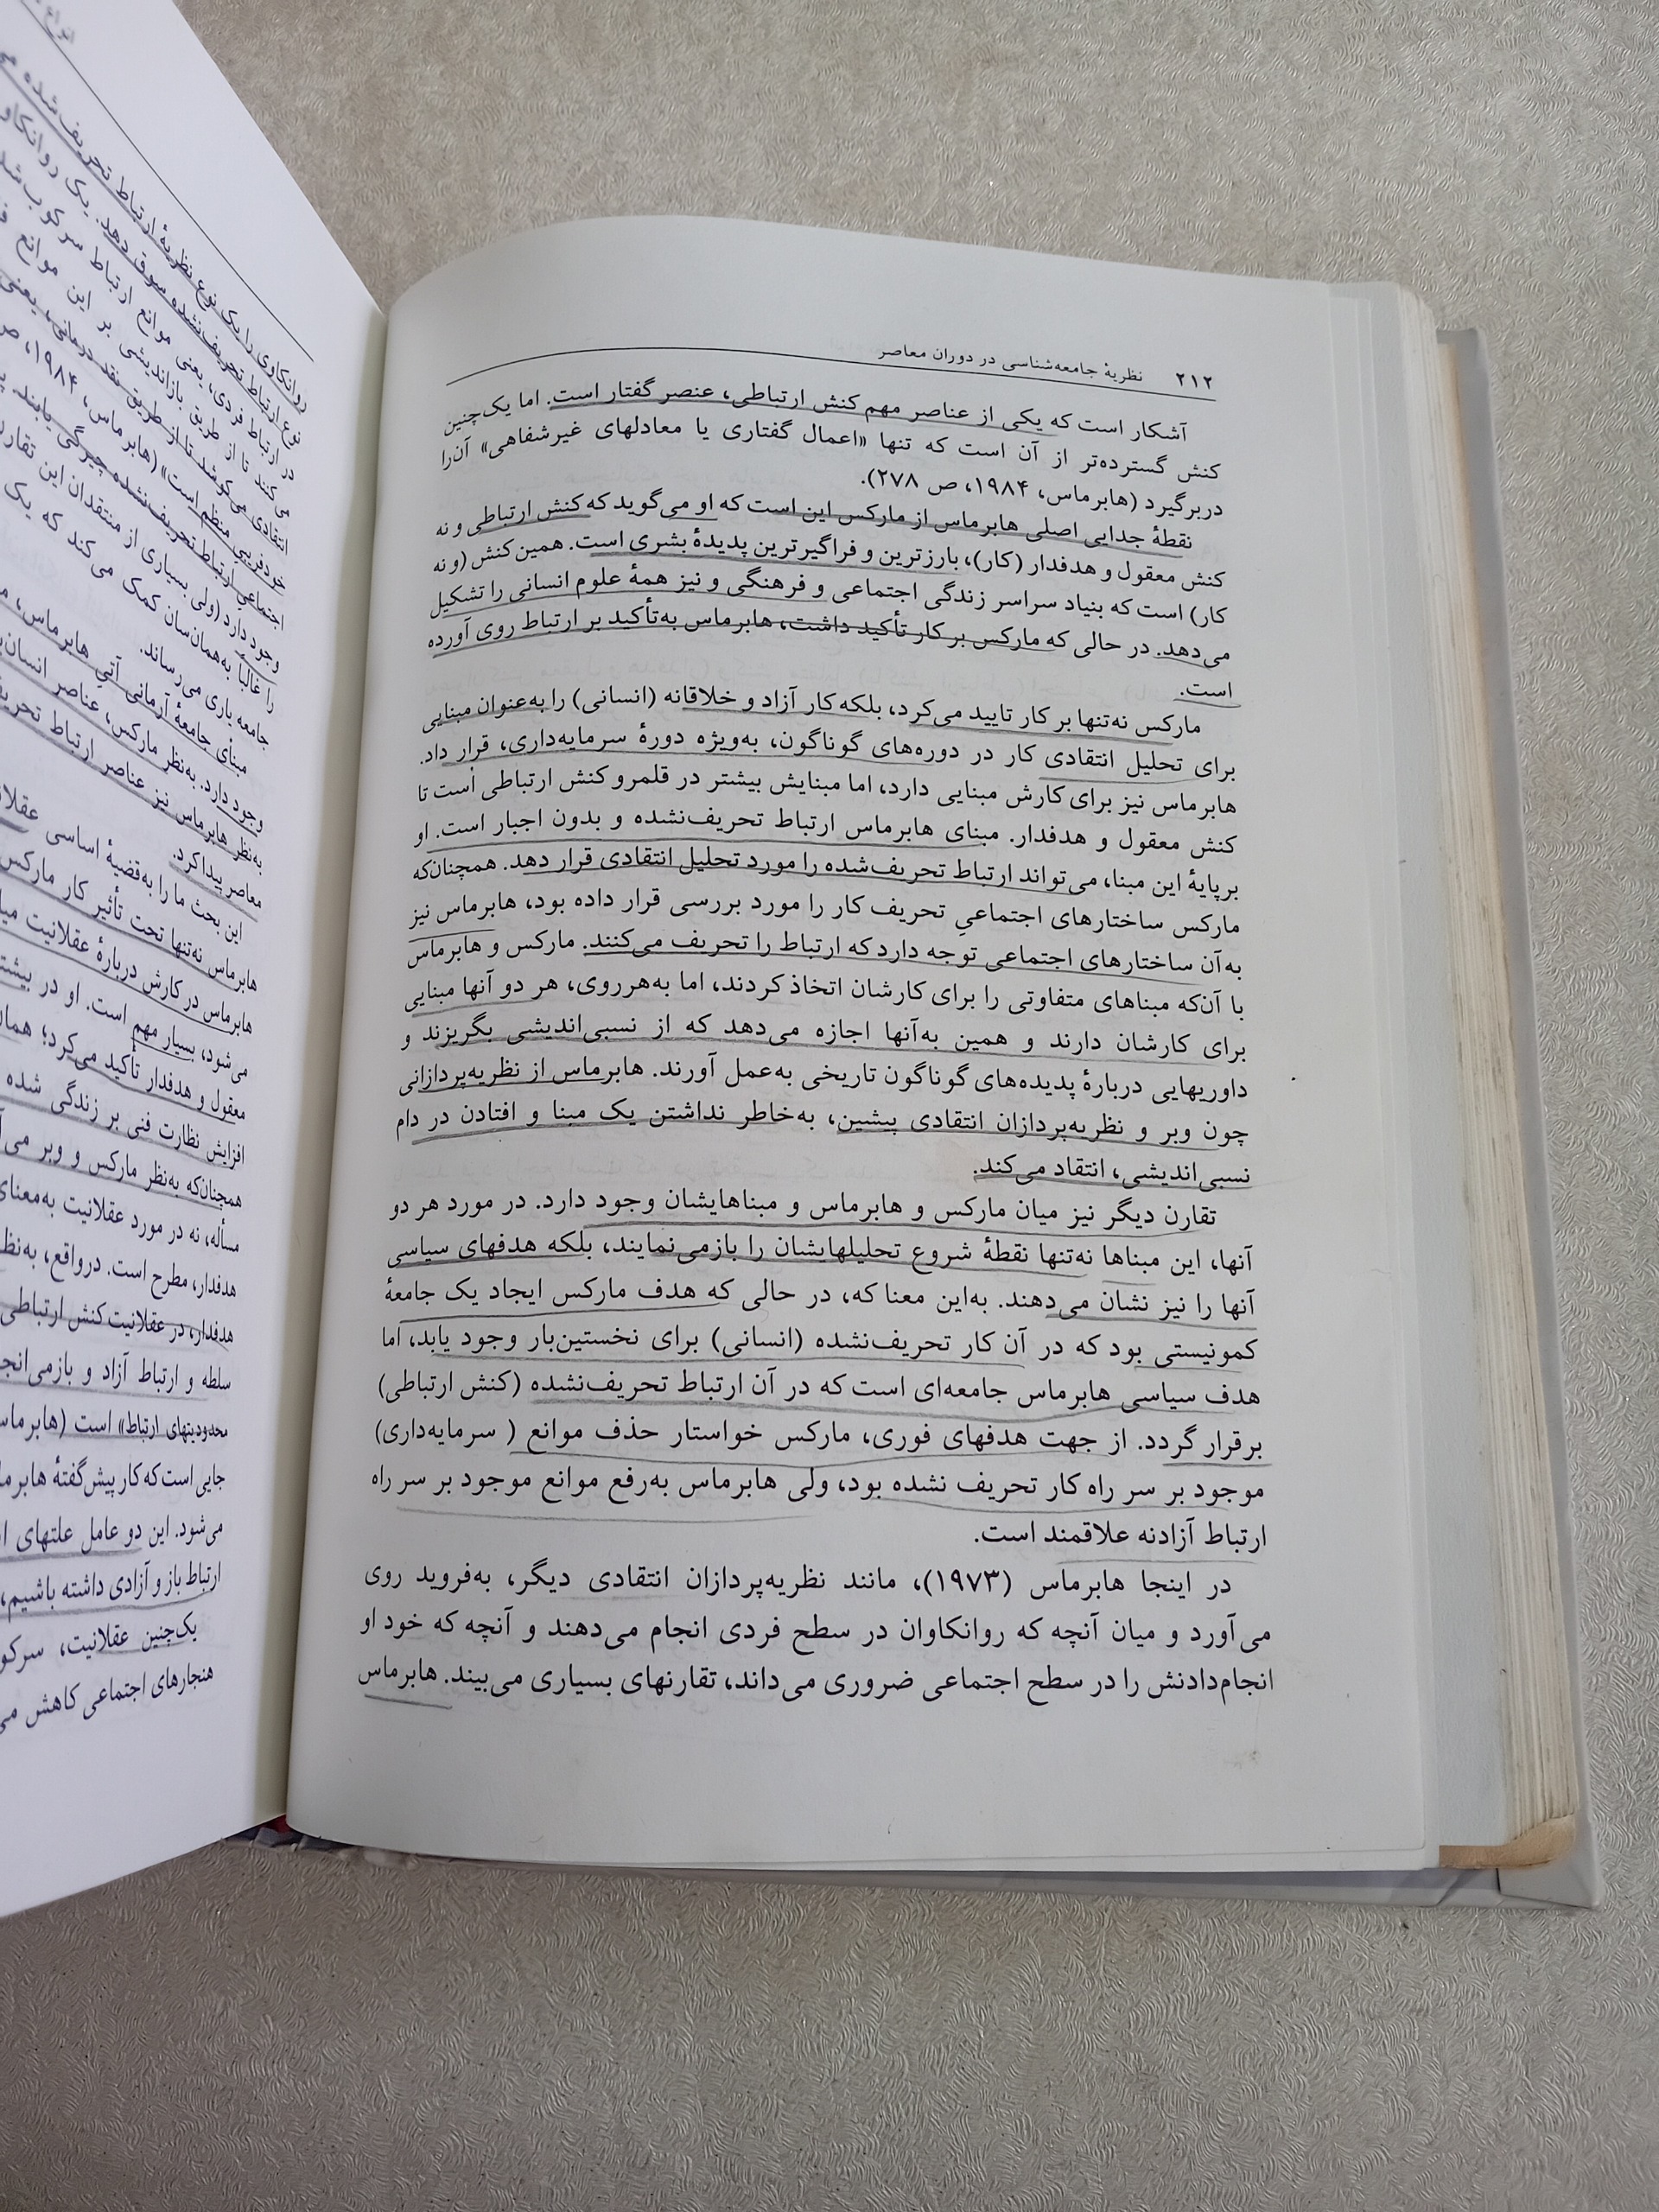 ۲۱۲ نظریهٔ جامعه‌شناسی در دوران معاصر
آشکار است که یکی از عناصر مهم کنش ارتباطی، عنصر گفتار است. اما یک‌چنین
کنش گسترده‌تر از آن است که تنها «اعمال گفتاری یا معادلهای غیرشفاهی» آن‌را
دربرگیرد (هابرماس، ۱۹۸۴، ص ۲۷۸).
نقطهٔ جدایی اصلی هابرماس از مارکس این است که او می‌گوید که کنش ارتباطی و نه
کنش معقول و هدفدار (کار)، بارزترین و فراگیرترین پدیدهٔ بشری است. همین کنش (و نه
کار) است که بنیاد سراسر زندگی اجتماعی و فرهنگی و نیز همهٔ علوم انسانی را تشکیل
می‌دهد. در حالی که مارکس بر کار تأکید داشت، هابرماس به‌تأکید بر ارتباط روی آورده
است.
مارکس نه‌تنها بر کار تایید می‌کرد، بلکه کار آزاد و خلاقانه (انسانی) را به‌عنوان مبنایی
برای تحلیل انتقادی کار در دوره‌های گوناگون، به‌ویژه دورهٔ سرمایه‌داری، قرار داد.
هابرماس نیز برای کارش مبنایی دارد، اما مبنایش بیشتر در قلمرو کنش ارتباطی است تا
کنش معقول و هدفدار. مبنای هابرماس ارتباط تحریف‌نشده و بدون اجبار است. او
برپایهٔ این مبنا، می‌تواند ارتباط تحریف‌شده را مورد تحلیل انتقادی قرار دهد. همچنان‌که
مارکس ساختارهای اجتماعیِ تحریف کار را مورد بررسی قرار داده بود، هابرماس نیز
به‌آن ساختارهای اجتماعی توجه دارد که ارتباط را تحریف می‌کنند. مارکس و هابرماس
با آن‌که مبناهای متفاوتی را برای کارشان اتخاذ کردند، اما به‌هرروی، هر دو آنها مبنایی
برای کارشان دارند و همین به‌آنها اجازه می‌دهد که از نسبی‌اندیشی بگریزند و
داوریهایی دربارهٔ پدیده‌های گوناگون تاریخی به‌عمل آورند. هابرماس از نظریه‌پردازانی
چون وبر و نظریه‌پردازان انتقادی پیشین، به‌خاطر نداشتن یک مبنا و افتادن در دام
نسبی‌اندیشی، انتقاد می‌کند.
تقارن دیگر نیز میان مارکس و هابرماس و مبناهایشان وجود دارد. در مورد هر دو
آنها، این مبناها نه‌تنها نقطهٔ شروع تحلیلهایشان را بازمی‌نمایند، بلکه هدفهای سیاسی
آنها را نیز نشان می‌دهند. به‌این معنا که، در حالی که هدف مارکس ایجاد یک جامعهٔ
کمونیستی بود که در آن کار تحریف‌نشده (انسانی) برای نخستین‌بار وجود یابد، اما
هدف سیاسی هابرماس جامعه‌ای است که در آن ارتباط تحریف‌نشده (کنش ارتباطی)
برقرار گردد. از جهت هدفهای فوری، مارکس خواستار حذف موانع ( سرمایه‌داری)
موجود بر سر راه کار تحریف نشده بود، ولی هابرماس به‌رفع موانع موجود بر سر راه
ارتباط آزادنه علاقمند است.
در اینجا هابرماس (۱۹۷۳)، مانند نظریه‌پردازان انتقادی دیگر، به‌فروید روی
می‌آورد و میان آنچه که روانکاوان در سطح فردی انجام می‌دهند و آنچه که خود او
انجام‌دادنش را در سطح اجتماعی ضروری می‌داند، تقارنهای بسیاری می‌بیند. هابرماس
روانکاوی را یک نوع نظریهٔ ارتباط تحریف‌شده
نوع ارتباط تحریف‌نشده سوق دهد. یک
در ارتباط فردی، یعنی موانع ارتباط سرکوب
می‌کنند تا از طریق بازاندیشی بر این موانع
انتقادی می‌کوشد تا از طریق نقد درمانی، یعنی
خودفریبی منظم است» (هابرماس، ۱۹۸۴،
اجتماعی ارتباط تحریف‌نشده چیرگی یابند.
وجود دارد (ولی بسیاری از منتقدان این
را غالباً به‌همان‌سان کمک می‌کند که یک
جامعه یاری می‌رساند.
مبنای جامعهٔ آرمانی آتی هابرماس،
وجود دارد. به‌نظر مارکس، عناصر
به‌نظر هابرماس نیز عناصر ارتباط
معاصر پیدا کرد.
این بحث ما را به‌قضیهٔ اساسی
هابرماس نه‌تنها تحت تأثیر کار مارکس
هابرماس در کارش دربارهٔ عقلانیت
می‌شود، بسیار مهم است. او در
معقول و هدفدار تأکید می‌کرد؛
افزایش نظارت فنی بر زندگی شده
همچنان‌که به‌نظر مارکس و وبر
مسأله، نه در مورد عقلانیت به‌معنای
هدفدار، مطرح است. درواقع،
هدفدار، در عقلانیت کنش ارتباطی
سلطه و ارتباط آزاد و باز
محدودیتهای ارتباط» است
جایی است که کار پیش‌گفتهٔ
می‌شود. این دو عامل علتهای
ارتباط باز و آزادی داشته باشیم،
یک‌چنین عقلانیت،
هنجارهای اجتماعی کاهش